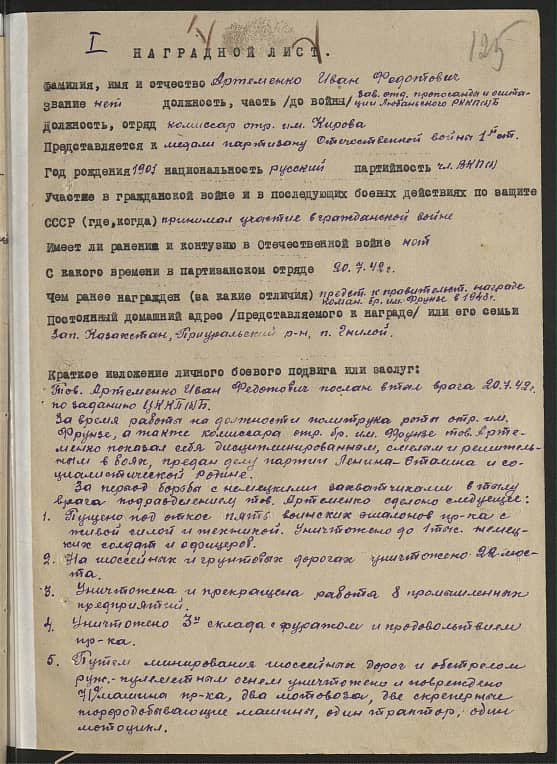 I
125
НАГРАДНОЙ ЛИСТ.
Фамилия, имя и отчество Артеменко Иван Федотович
Звание нет должность, часть /до войны/ зав. отд. пропоганды и агита-
ции Любаньского РККП(б)Б
Должность, отряд комиссар отр. им. Кирова
Представляется к медали партизану Отечественной войны 1й ст.
Год рождения 1901 национальность русский партийность чл. ВКП(б)
Участие в гражданской войне и в последующих боевых действиях по защите
СССР (где,когда) принимал участие в гражданской войне
Имеет ли ранения и контузию в Отечественной войне нет
С какого времени в партизанском отряде 20.7.42г.
Чем ранее награжден (за какие отличия) предст. к правительст. награде
коман. бр. им. Фрунзе в 1943г.
Постоянный домашний адрес /представляемого к награде/ или его семьи
Зап. Казахстан, Приуральский р-н, п. Гнилой.
Краткое изложение личного боевого подвига или заслуг:
Тов. Артеменко Иван Федотович послан в тыл врага 20.7.42г.
по заданию ЦККП(б)Б.
За время работы на должности политрука роты отр. им.
Фрунзе, а также комиссара отр. бр. им. Фрунзе тов. Арте-
менко показал себя дисциплинированным, смелым и решитель-
ным в боях, предан делу партии Ленина-Сталина и со-
циалистической Родине.
За период борьбы с немецкими захватчиками в тылу
врага подразделением тов. Артеменко сделоно следующее:
1. Пущено под откос пять воинских эшалонов пр-ка с
живой силой и техникой. Уничтожено до 1 тыс. немец-
ких солдат и офицеров.
2. На шоссейных и грунтовых дорогах уничтожено 22 мос-
та.
3. Уничтожена и прекращена работа 8 промышленных
предприятий.
4. Уничтожено 3и склада с фуражом и продовольствием
пр-ка.
5. Путем минирования шоссейных дорог и обстрелом
руж.-пулеметным огнем уничтожено и повреждено
машина пр-ка, два мотовоза, две скреперные
торфодобывающие машины, один трактор, один
мотоцикл.